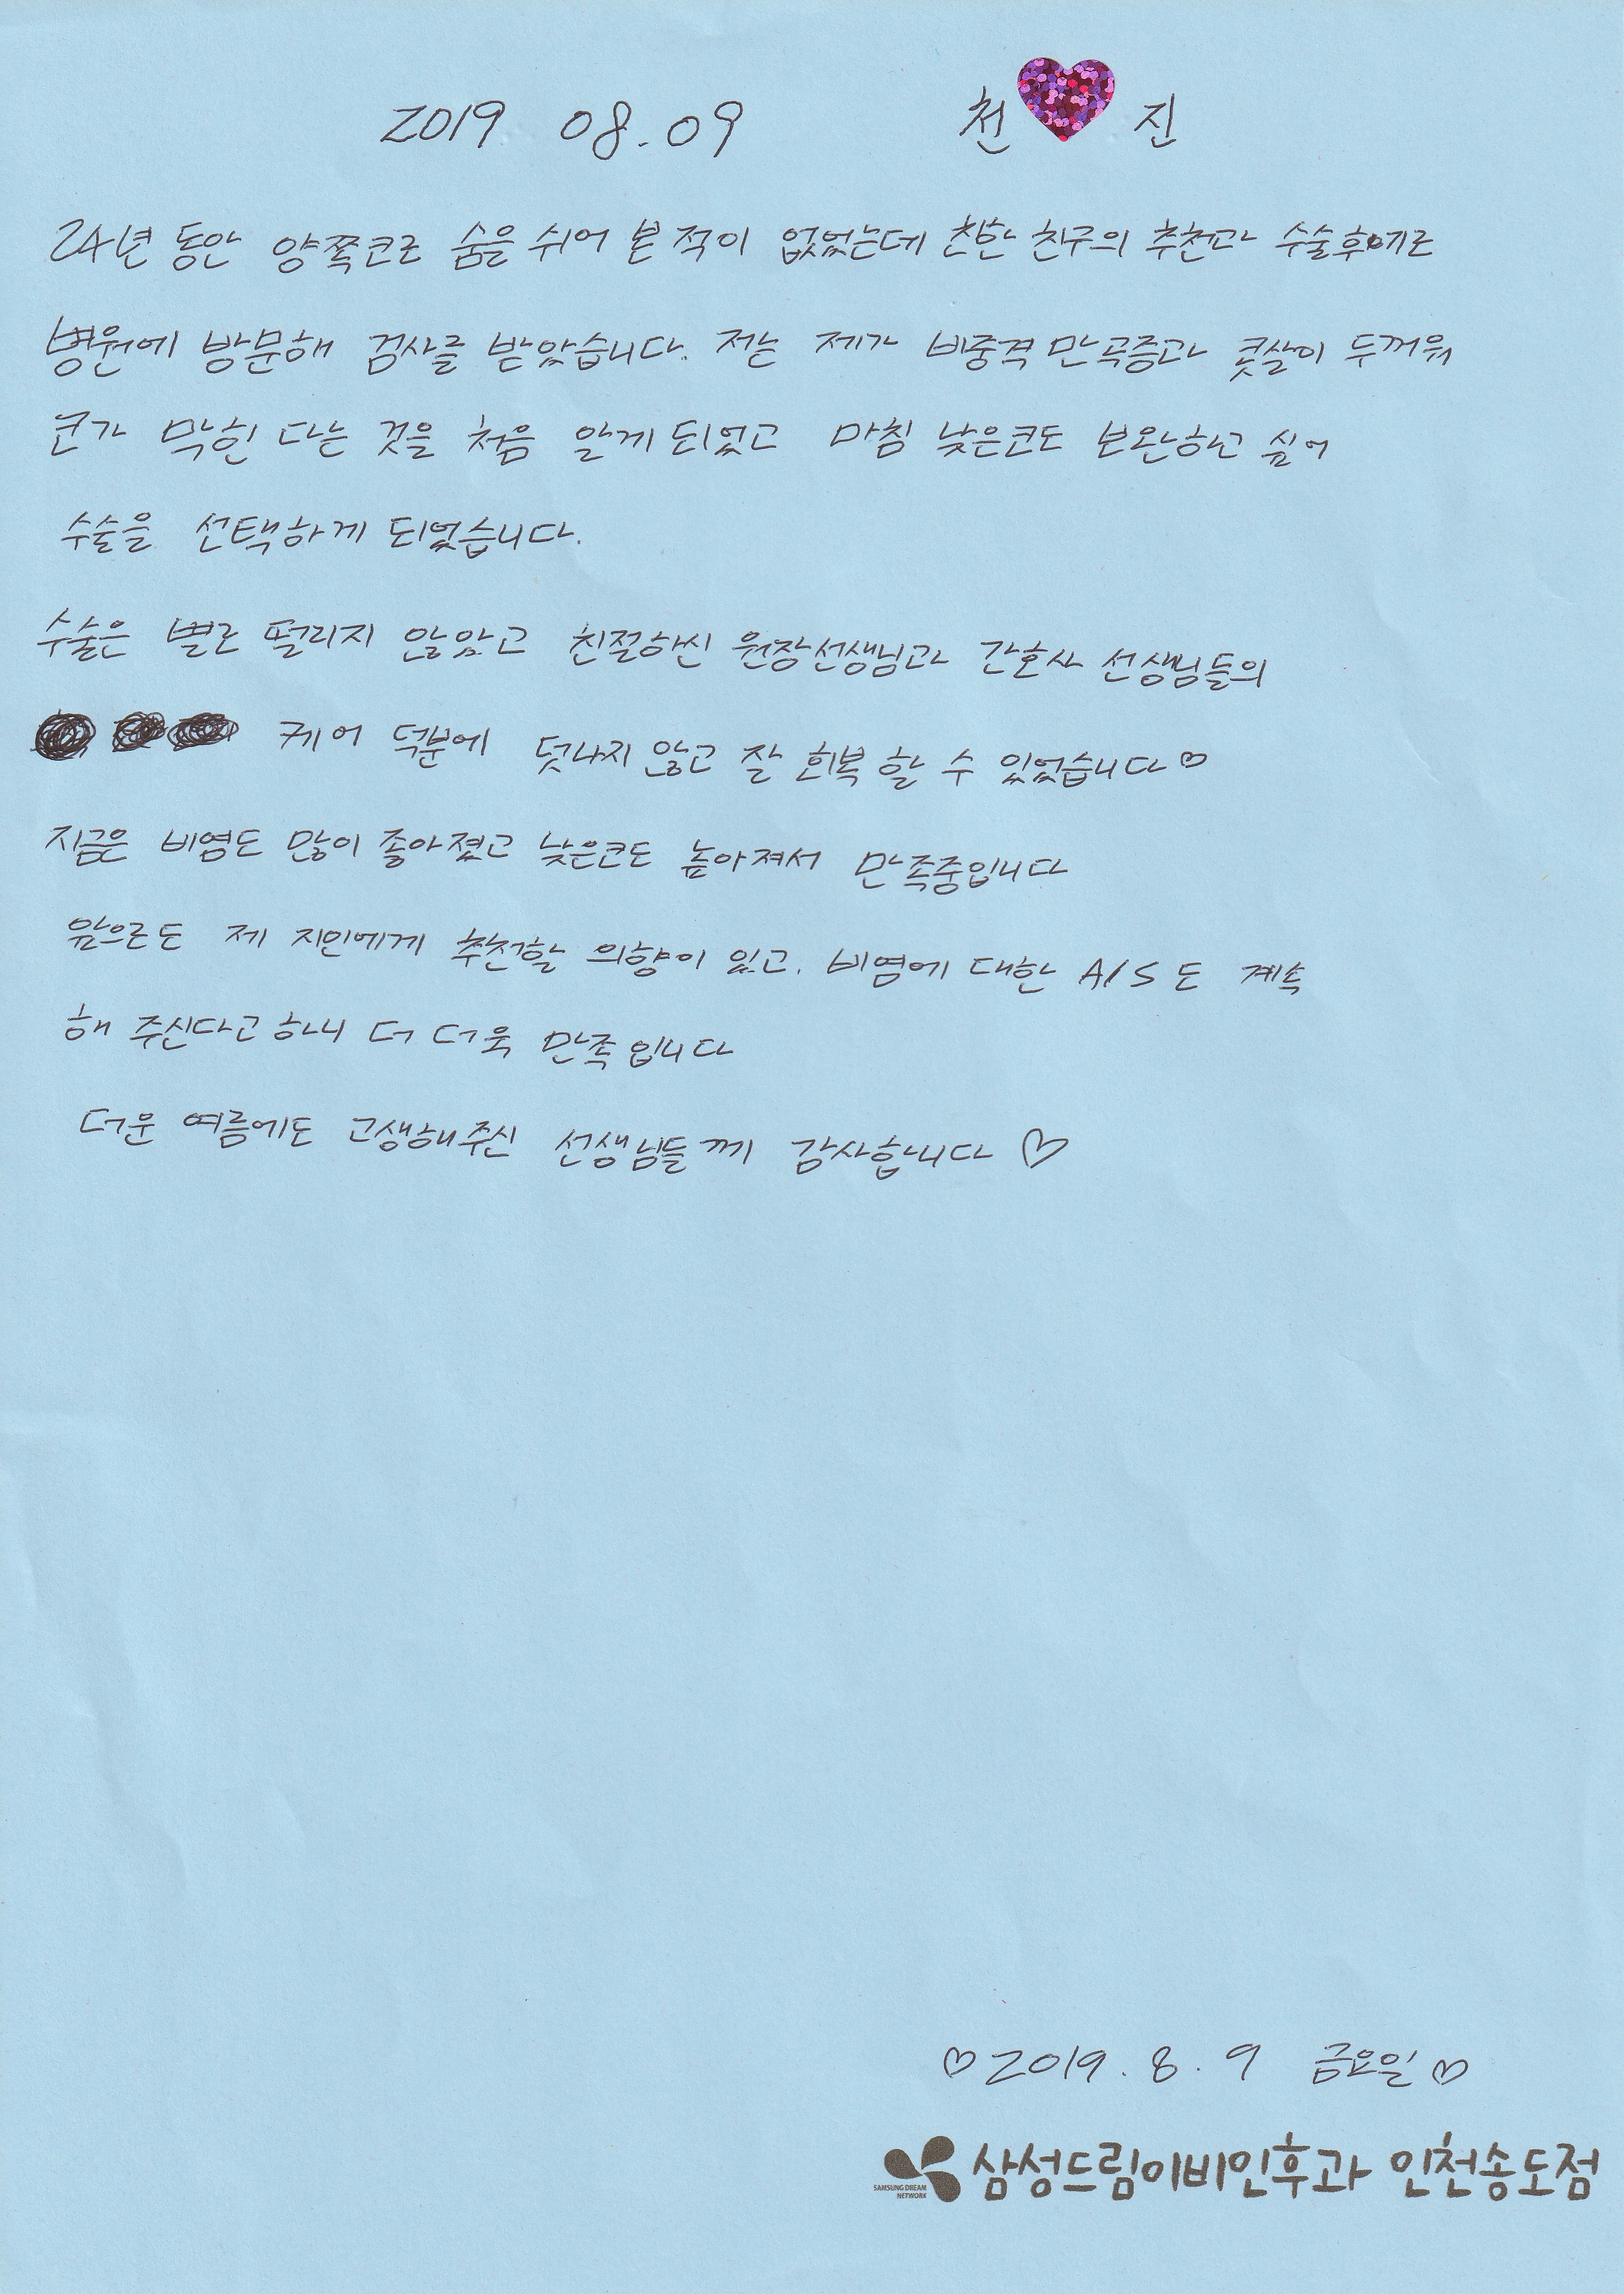 2019 08.09 천 진
24년 동안 양쪽코로 숨을 쉬어 본 적이 없었는데 친한 친구의 추천과 수술후기로
병원에 방문해 검사를 받았습니다. 저는 제가 비중격 만곡증과 콧살이 두꺼워
코가 막힌 다는 것을 처음 알게 되었고 마침 낮은코도 보완하고 싶어
수술을 선택하게 되었습니다.
수술은 별로 떨리지 않았고 친절하신 원장선생님과 간호사 선생님들의
케어 덕분에 덧나지 않고 잘 회복 할 수 있었습니다♡
지금은 비염도 많이 좋아졌고 낮은코도 높아져서 만족중입니다
앞으로도 제 지인에게 추천할 의향이 있고. 비염에 대한 A/S 도 계속
해 주신다고 하니 더 더욱 만족입니다
더운 여름에도 고생해주신 선생님들께 감사합니다 ♡
♡2019. 8. 9 금요일♡
SAMSUNG DREAM NETWORK 삼성드림이비인후과 인천송도점